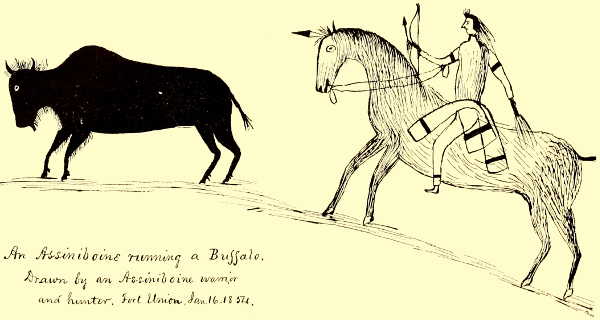 An Assiniboine running a Buffalo.
Drawn by an Assiniboine warrior
and hunter. Fort Union, Jan. 16. 1854.